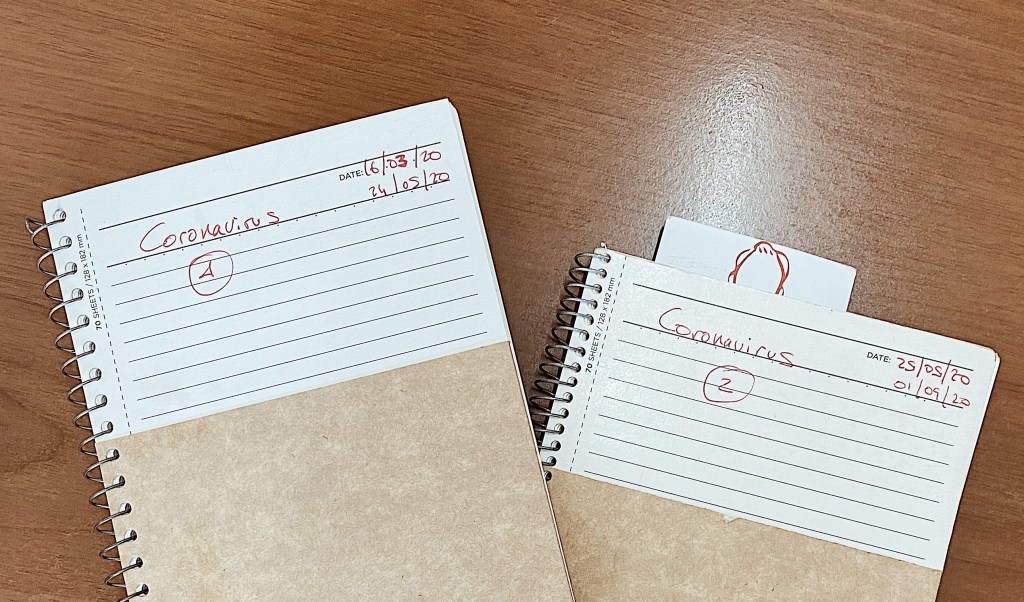 DATE: 16/03/20
24/05/20
Coronavirus
1
70 SHEETS / 128 x 182 mm
Coronavirus
DATE: 25/05/20
01/09/20
2
70 SHEETS / 128 x 182 mm